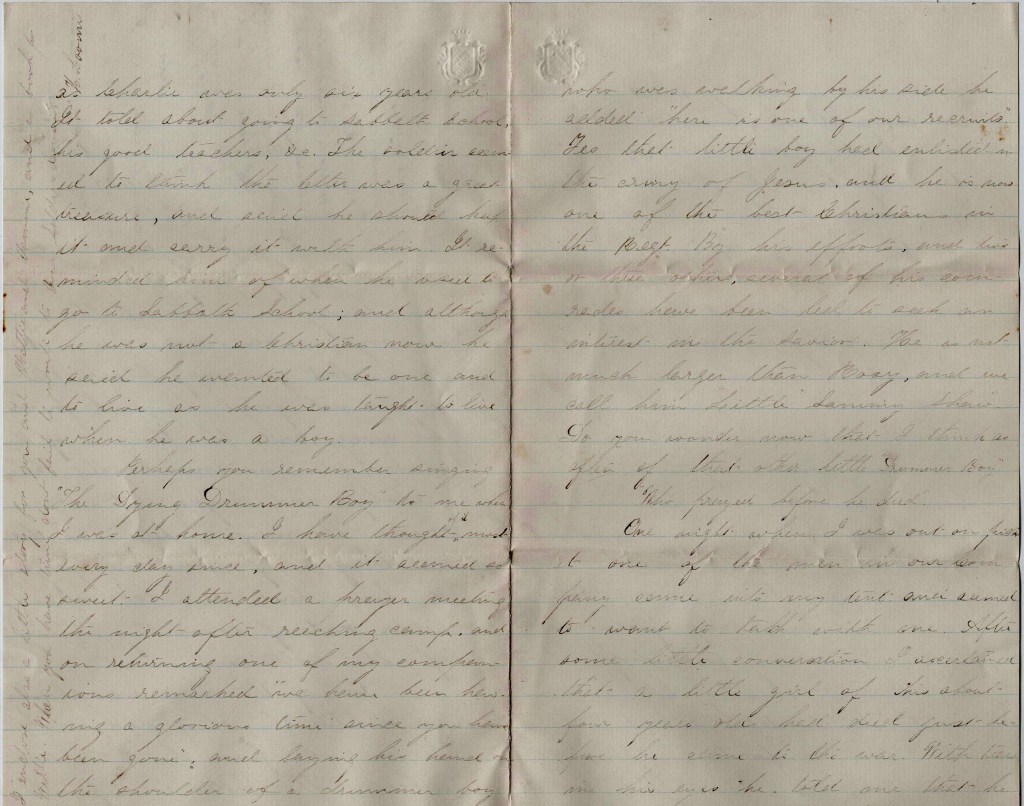 as Charlie was only six years old.
It told about going to Sabbath School,
his good teachers, &c. The soldier seem-
ed to think the letter was a great
treasure, and said he should keep
it and carry it with him. It re-
minded him of when he used to
go to Sabbath School; and although
he was not a Christian now he
said he wanted to be one and
to live as he was taught to live
when he was a boy.
Perhaps you remember singing
"The Dying Drummer Boy" to me when
I was at home. I have thought of it most
every day since, and it seemed so
sweet. I attended a prayer meeting
the night after reaching camp, and
on returning one of my compan-
ions remarked "we have been hav-
ing a glorious time since you have
been gone", and laying his hand on
the shoulder of a drummer boy
who was walking by his side he
added "here is one of our recruits"
Yes that little boy had enlisted in
the army of Jesus, and he is now
one of the best Christians in
the Regt. By his efforts, and two
or three others, several of his com-
rades have been led to seek an
interest in the Savior. He is not
much larger than Rosy, and we
call him "Little Sammy Shaw".
Do you wonder now that I think as
often of that other little "Drummer Boy"
"Who prayed before he died".
One night when I was out on picket
one of the men in our com
pany came into my tent and seemed
to want to talk with me. After
some little conversation I ascertained
that a little girl of his about
four years old had died just be-
fore he came to the war. With tears
in his eyes he told me that he
I enclose also a little story for you and
Willie. When you have time don't fail to write to